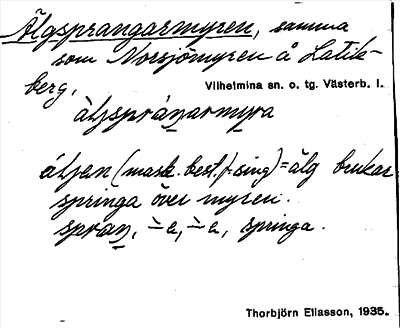 Älgsprangarmyren, samma
som Norsjömyren å Latik-
berg, Vilhelmina sn. o. tg. Västerb. l.
àljspráŋarmyra
áljen (mask. best. f. sing) = älg brukar
springa över myren.
spraŋ, ∸a, ∸a, springa.
Thorbjörn Eliasson, 1935.